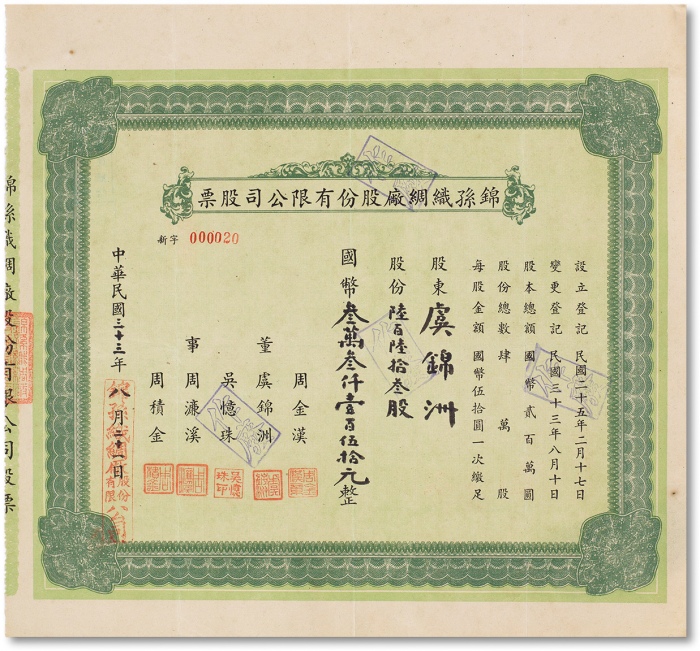 錦孫織綢廠股份有限公司股票
新字 000020
設立登記 民國二十五年二月十七日
變更登記 民國三十三年八月十日
股本總額 國幣貳百萬圓
股份總數 肆萬股
每股金額 國幣伍拾圓一次繳足
股東 虞錦洲
股份 陸百陸拾叁股
國幣 叁萬叁仟壹百伍拾元整
董事
周金漢
虞錦洲
吳憶珠
周濂溪
周積金
吳憶珠印
中華民國三十三年八月二十一日
錦孫織綢廠股份有限公司
錦孫織綢廠股份有限公司股票